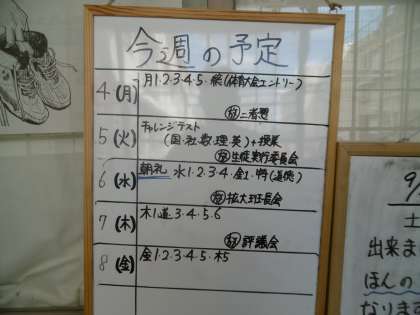 今週の予定
4(月) 月1・2・3・4・5・総(体育大会エントリー)
放 二者懇
5(火) チャレンジテスト
(国・社・数・理・英)+授業
放 生徒実行委員会
6(水) 朝礼 水1・2・3・4・金1・特(道徳)
放 拡大班長会
7(木) 木1道3・4・5・6
放 評議会
8(金) 金1・2・3・4・5・木5
9/
土
出来ま
ほんの
なりま